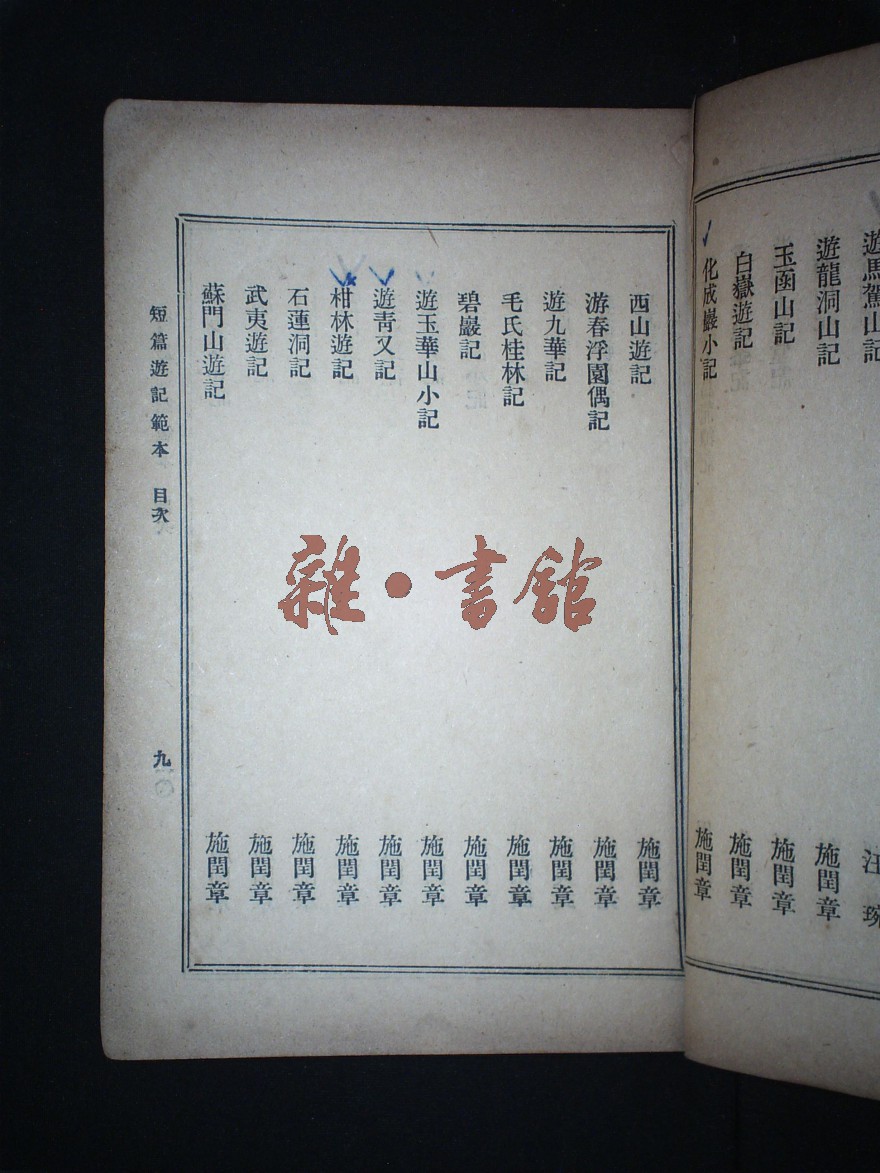 遊馬駕山記 汪琬
遊龍洞山記 施閏章
玉函山記 施閏章
白嶽遊記 施閏章
化成巖小記 施閏章
西山遊記 施閏章
游春浮園偶記 施閏章
遊九華記 施閏章
毛氏桂林記 施閏章
碧巖記 施閏章
遊玉華山小記 施閏章
遊靑又記 施閏章
柑林遊記 施閏章
石蓮洞記 施閏章
武夷遊記 施閏章
蘇門山遊記 施閏章
短篇遊記範本 目次 九
雜·書館